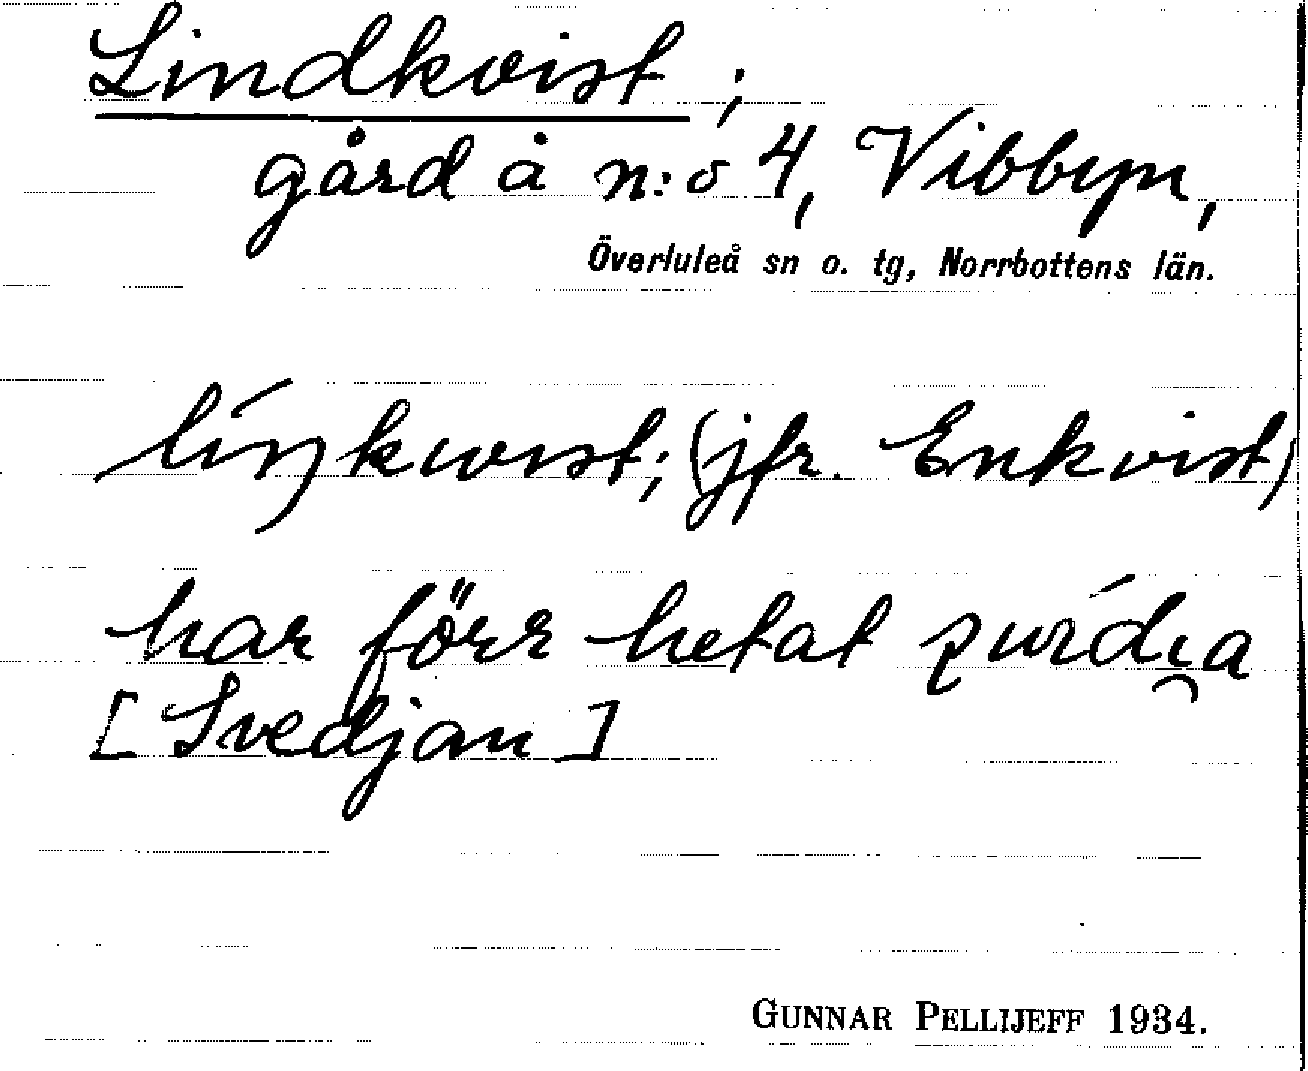 Lindkvist ;
gård å n:o 4, Vibbyn,
Överluleå sn o. tg, Norrbottens län.
(jfr. Enkvist)
har förr hetat
[Svedjan]
GUNNAR PELLIJEFF 1934.